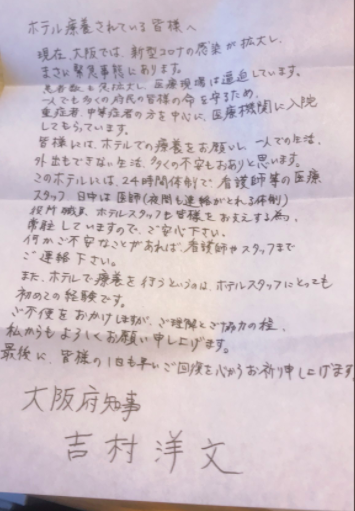 ホテル療養されている皆様へ
現在、大阪では、新型コロナの感染が拡大し、
まさに緊急事態にあります。
患者数も急拡大し、医療現場は逼迫しています。
一人でも多くの府民の皆様の命を守るため、
重症者、中等症者の方を中心に、医療機関に入院
してもらっています。
皆様には、ホテルでの療養をお願いし、一人での生活、
外出もできない生活、多くの不安もおありと思います。
このホテルには、24時間体制で、看護師等の医療
スタッフ、日中は医師(夜間も連絡がとれる体制)
役所職員、ホテルスタッフも皆様をお支えする為、
常駐していますので、ご安心下さい。
何かご不安なことがあれば、看護師やスタッフまで
ご連絡下さい。
また、ホテルで療養を行うというのは、ホテルスタッフにとっても
初めての経験です。
ご不便をおかけしますが、ご理解とご協力の程、
私からもよろしくお願い申し上げます。
最後に、皆様の1日も早いご回復を心からお祈り申し上げます
大阪府知事
吉村洋文